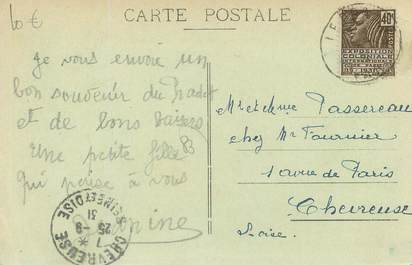 10 €
CARTE POSTALE
40c
POSTES
EXPOSITION
COLONIALE
INTERNATIONALE
PARIS
Je vous envoie un
bon souvenir du
et de bons baisers
Une petite fille
qui pense à vous
Mr et Mme Passereau
chez Mr Fournier
rue de Paris
Chevreuse
S. Oise.
CHEVREUSE
SEINE ET OISE
7 *
25 -8
31